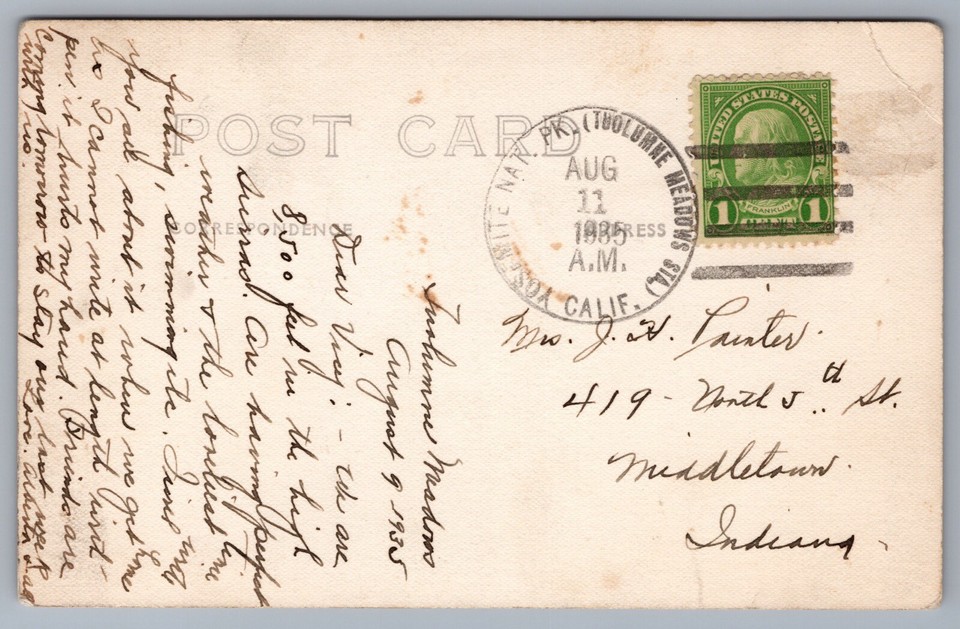 POST CARD
CORRESPONDENCE
ADDRESS
YOSEMITE NAT. PK. (TUOLUMNE MEADOWS STA.) CALIF.
AUG
11
1935
A.M.
UNITED STATES POSTAGE
FRANKLIN
1 1
Mrs. J. H. Painter.
419 - North 5th St.
Middletown.
Indiana
Tuolumne Meadows
August 9 1935
Dear Vicy: - We are
8,500 feet in the high
Sierras. Are having perfect
weather & the loveliest time
fishing, swimming etc.
you all about it when we get home
as I cannot write at length
pen. it hurts my hand. Friends are
coming tomorrow to stay our last week
with us. Love.